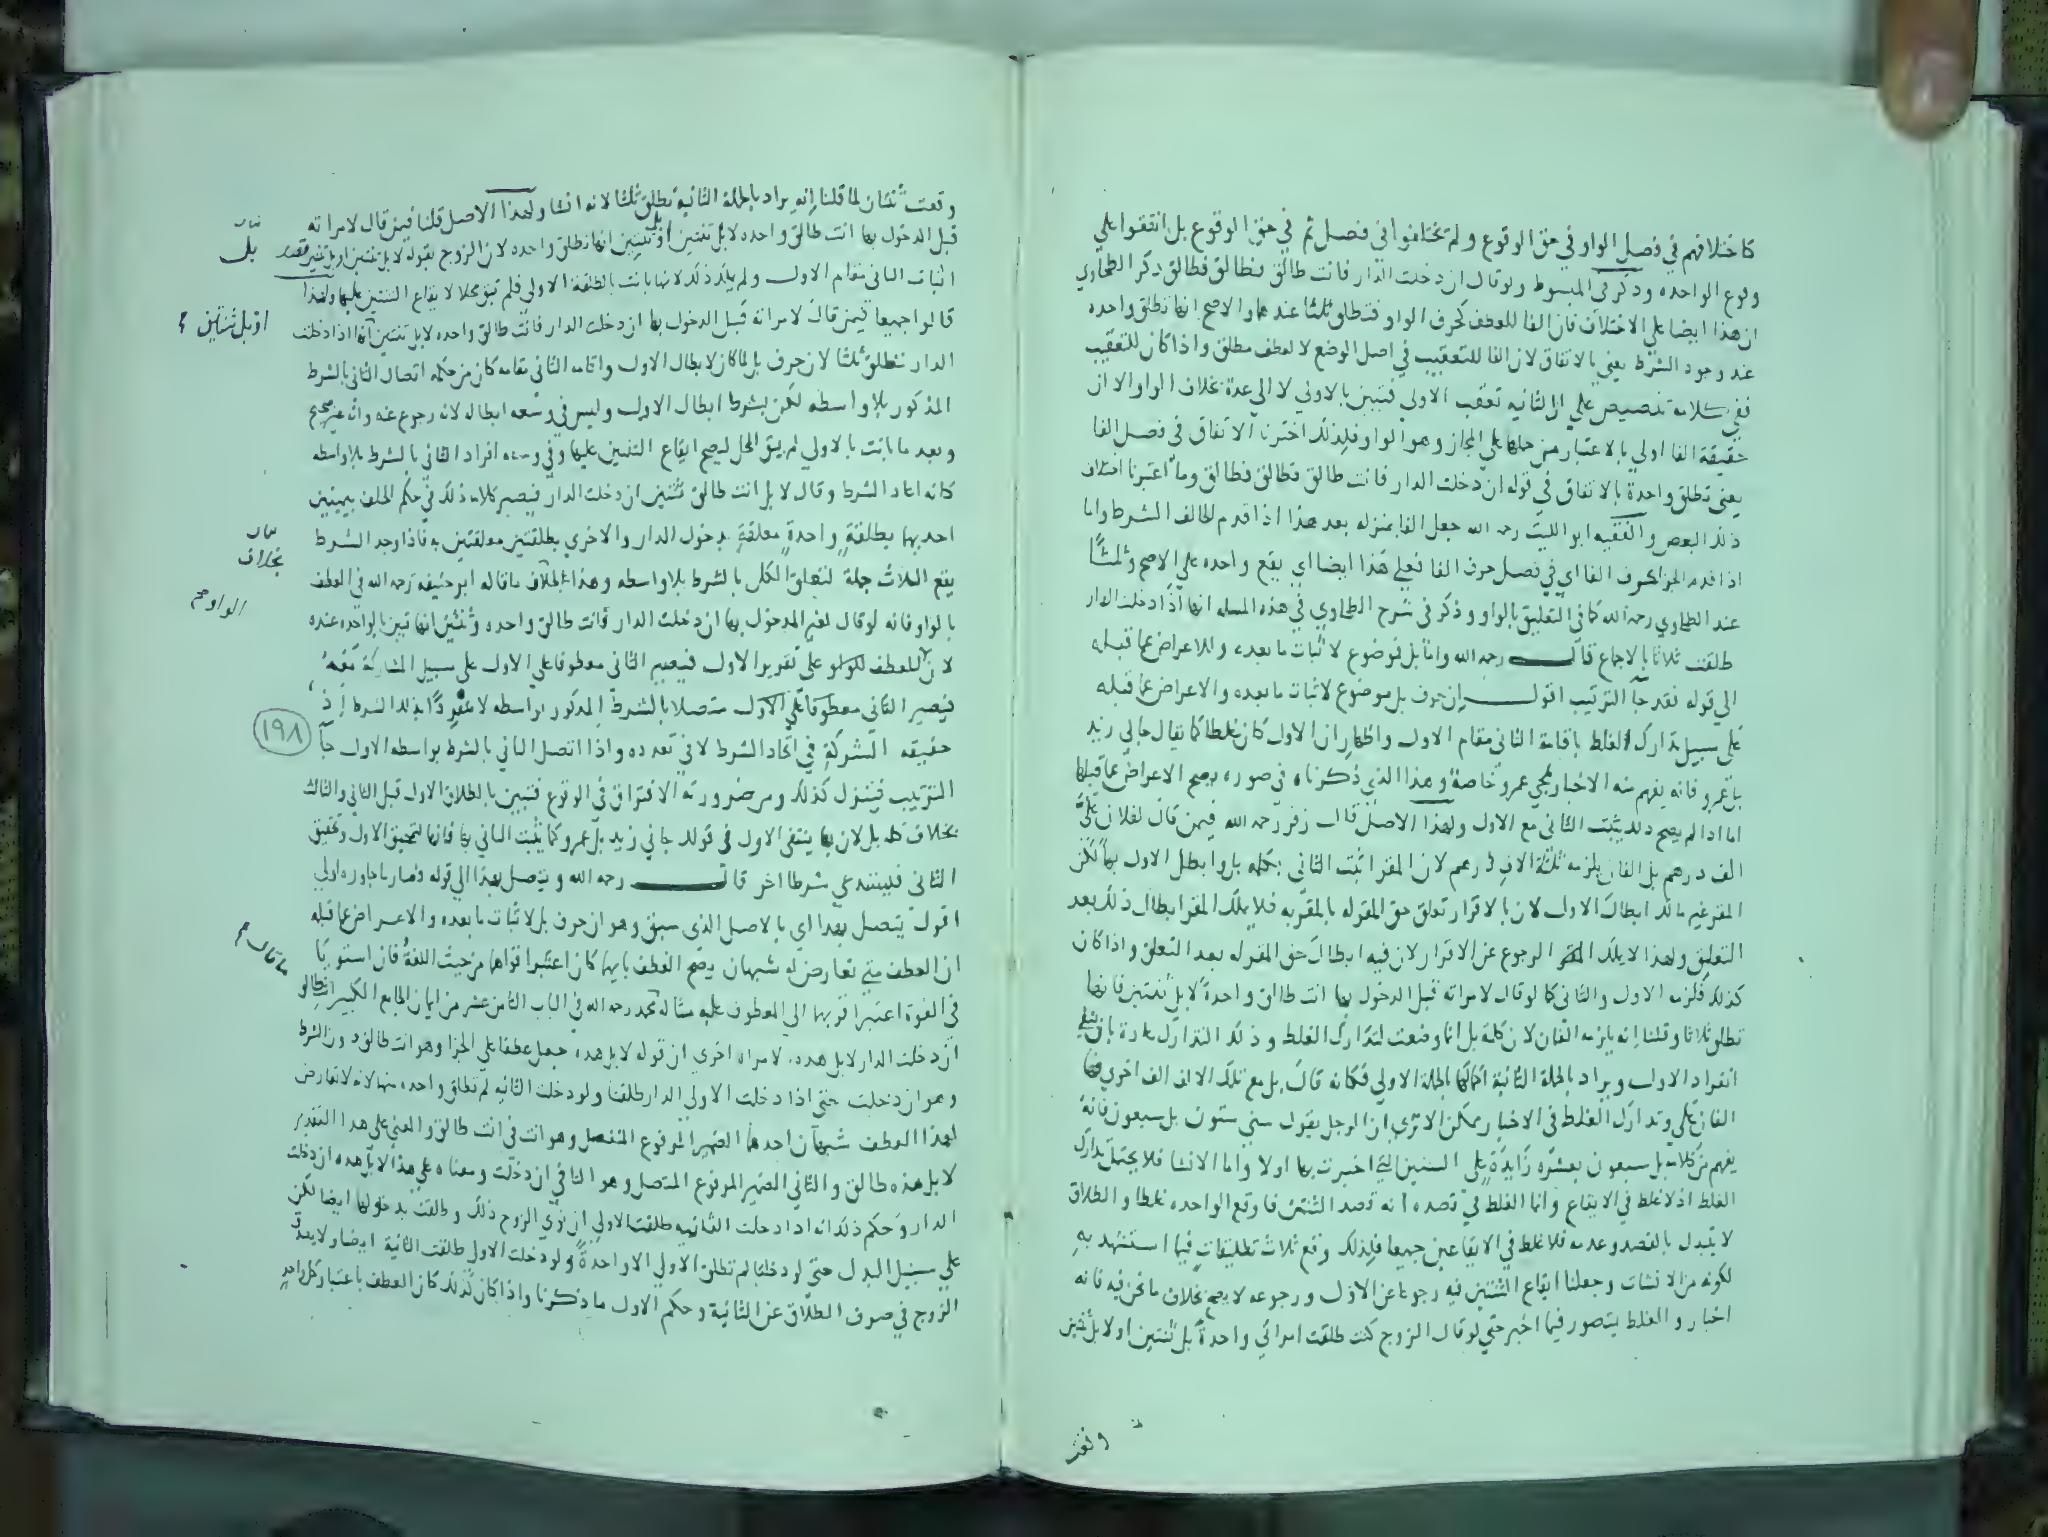 كاختلافهم في فصل الواو في حق الوقوع ولم يختلفوا في فصل ثم في حق الوقوع بل اتفقوا على
وقوع الواحده وذكر في المبسوط ولو قال ان دخلت الدار فانت طالق فطالق فطالق ذكر الطحاوي
ان هذا ايضا على الاختلاف فان الفا للعطف كحرف الواو فتطلق ثلثا عندهما والاصح انها تطلق واحده
عند وجود الشرط يعني بالاتفاق لان الفا للتعقيب في اصل الوضع لا لعطف مطلق واذا كان للتعقيب
ففي كلامه تنصيص على ان الثانيه تعقب الاولى فتبين بالاولى لا الى عدة بخلاف الواو الا ان
حقيقة الفا اولى بالاعتبار من حملها على المجاز وهو الواو فلذلك اخترنا الاتفاق في فصل الفا
يعني تطلق واحدة بالاتفاق في قوله ان دخلت الدار فانت طالق فطالق فطالق وما اعتبرنا اختلاف
ذلك البعض والفقيه ابو الليث رحمه الله جعل الفا بمنزله بعد هذا اذا قدم الحالف الشرط واما
اذا قدم الجزا بحرف الفا اي في فصل حرف الفا فعلى هذا ايضا اي يقع واحده على الاصح وثلثا
عند الطحاوي رحمه الله كما في التعليق بالواو وذكر في شرح الطحاوي في هذه المسله انها اذا دخلت الدار
طلقت ثلاثا بالاجماع قال رحمه الله واما بل فموضوع لاثبات ما بعده وللاعراض عما قبله
الى قوله فقد جآ الترتيب اقول ان حرف بل موضوع لاثبات ما بعده والاعراض عما قبله
على سبيل تدارك الغلط باقامة الثاني مقام الاول واظهار ان الاول كان غلطا كما يقال جاني زيد
بل عمرو فانه يفهم منه الاخبار بمجي عمرو خاصة وهذا الذي ذكرناه في صوره يصح الاعراض عما قبلها
اما اذا لم يصح ذلك يثبت الثاني مع الاول ولهذا الاصل قال زفر رحمه الله فيمن قال لفلان علي
الف درهم بل الفان يلزمه ثلثة الاف درهم لان المقر اثبت الثاني بكلمه بل وابطل الاول بها لكن
المقر غير مالك ابطال الاول لان بالاقرار تعلق حق المقر له بالمقر به فلا يملك المقر ابطال ذلك بعد
التعلق ولهذا لا يملك المقر الرجوع عن الاقرار لان فيه ابطال حق المقر له بعد التعلق واذا كان
كذلك فلزمه الاول والثاني كما لو قال لامراته قبل الدخول بها انت طالق واحدة لا بل ثنتين فانها
تطلق ثلاثا وقلنا انه يلزمه الفان لان كلمة بل انما وضعت لتدارك الغلط وذلك التدارك عادة بان ينفي
انفراد الاول ويراد بالجملة الثانية اكمالها بالجملة الاولى فكانه قال بل مع تلك الالف الف اخرى فهما
الفان علي وتدارك الغلط في الاخبار ممكن الا ترى ان الرجل يقول سني ستون بل سبعون فانه
يفهم من كلامه بل سبعون بعشره زايدة على السنين التي اخبرت بها اولا واما الانشا فلا يحتمل تدارك
الغلط اذ لا غلط في الايقاع وانما الغلط في قصده انه قصد الثنتين فاوقع الواحده غلطا والطلاق
لا يتبدل بالقصد وعدمه فلا غلط في الايقاعين جميعا فلذلك وقع ثلاث تطليقات فيما استشهد به
لكونه من الانشات وجعلنا ايقاع الثنتين فيه رجوعا عن الاول ورجوعه لا يصح بخلاف ما نحن فيه فانه
اخبار والغلط يتصور فيما اخبر حتى لو قال الزوج كنت طلقت امراتي واحدة بل ثنتين او لا بل ثنتين
وقعت
وقعت ثنتان لما قلنا انه يراد بالجملة الثانية تطلق ثلثا لانه انشا ولهذا الاصل قلنا فيمن قال لامراته
قبل الدخول بها انت طالق واحده لا بل ثنتين او بل ثنتين انها تطلق واحده لان الزوج بقوله لا بل ثنتين او بل ثنتين قصد
اثبات الثاني مقام الاول ولم يملك ذلك لانها بانت بالطلقة الاولى فلم تبق محلا لايقاع الثنتين عليها ولهذا
قالوا جميعا فيمن قال لامراته قبل الدخول بها ان دخلت الدار فانت طالق واحده لا بل ثنتين انها اذا دخلت
الدار تطلق ثلثا لان حرف بل لما كان لابطال الاول واقامه الثاني مقامه كان من حكمه اتصال الثاني بالشرط
المذكور بلا واسطه لكن بشرط ابطال الاول وليس في وسعه ابطاله لانه رجوع عنه وانه غير صحيح
وبعد ما بانت بالاولى لم يبق المحل ليصح ايقاع الثنتين عليها وفي وسعه افراد الثاني بالشرط بلا واسطه
كانه اعاد الشرط وقال لا بل انت طالق ثنتين ان دخلت الدار فيصير كلامه ذلك في حكم الحلف بيمينين
احديهما بطلقة واحدة معلقة بدخول الدار والاخرى بطلقتين معلقتين به فاذا وجد الشرط
يقع الثلاث جملة لتعلق الكل بالشرط بلا واسطه وهذا بخلاف ما قاله ابو حنيفه رحمه الله في العطف
بالواو فانه لو قال لغير المدخول بها ان دخلت الدار فانت طالق واحده وثنتين انها تبين بالواحده عنده
لان الواو للعطف على تقرير الاول فيصير الثاني معطوفا على الاول على سبيل المشاركة معه
فيصير الثاني معطوفا على الاول متصلا بالشرط المذكور بواسطه لا منفردا بذلك الشرط اذ
حقيقه الشركة في اتحاد الشرط لا في تعدده واذا اتصل الثاني بالشرط بواسطه الاول جآ
الترتيب فينزل كذلك ومن ضرورته الافتراق في الوقوع فتبين بالطلاق الاول قبل الثاني والثالث
بخلاف كلمه بل لان بها ينتفي الاول في قولك جاني زيد بل عمرو كما يثبت الثاني بها فانها لتحقيق الاول وتحقيق
الثاني فيستدعي شرطا اخر قال رحمه الله ويتصل بهذا الى قوله فصار ما جاوره اولى
اقول يتصل بهذا اي بالاصل الذي سبق وهو ان حرف بل لاثبات ما بعده والاعراض عما قبله
ان العطف متى تعارض له شبهان يصح العطف بايهما كان اعتبر اقواهما من حيث اللغة فان استويا
في القوة اعتبر اقربهما الى المعطوف عليه مثاله محمد رحمه الله في الباب الثامن عشر من ايمان الجامع الكبير انت طالق
ان دخلت الدار لا بل هذه لامراه اخرى ان قوله لا بل هذه جعل عطفا على الجزا وهو انت طالق دون الشرط
وهو ان دخلت حتى اذا دخلت الاولى الدار طلقتا ولو دخلت الثانيه لم تطلق واحده منهما لانه لا تعارض
لهذا العطف شبهان احدهما الضمير المرفوع المنفصل وهو انت في انت طالق والمعنى على هذا التقدير
لا بل هذه طالق والثاني الضمير المرفوع المتصل وهو التا في ان دخلت ومعناه على هذا لا بل هذه ان دخلت
الدار وحكم ذلك انه اذا دخلت الثانيه طلقت الاولى ان نوى الزوج ذلك وطلقت بدخولها ايضا لكن
على سبيل البدل حتى لو دخلتا لم تطلق الاولى الا واحدة ولو دخلت الاولى طلقت الثانية ايضا ولا يصدق
الزوج في صرف الطلاق عن الثانية وحكم الاول ما ذكرنا واذا كان كذلك كان العطف باعتبار كل واحد
بل
او بل ثنتين
بخلاف
الواو
١٩٨
ما قال